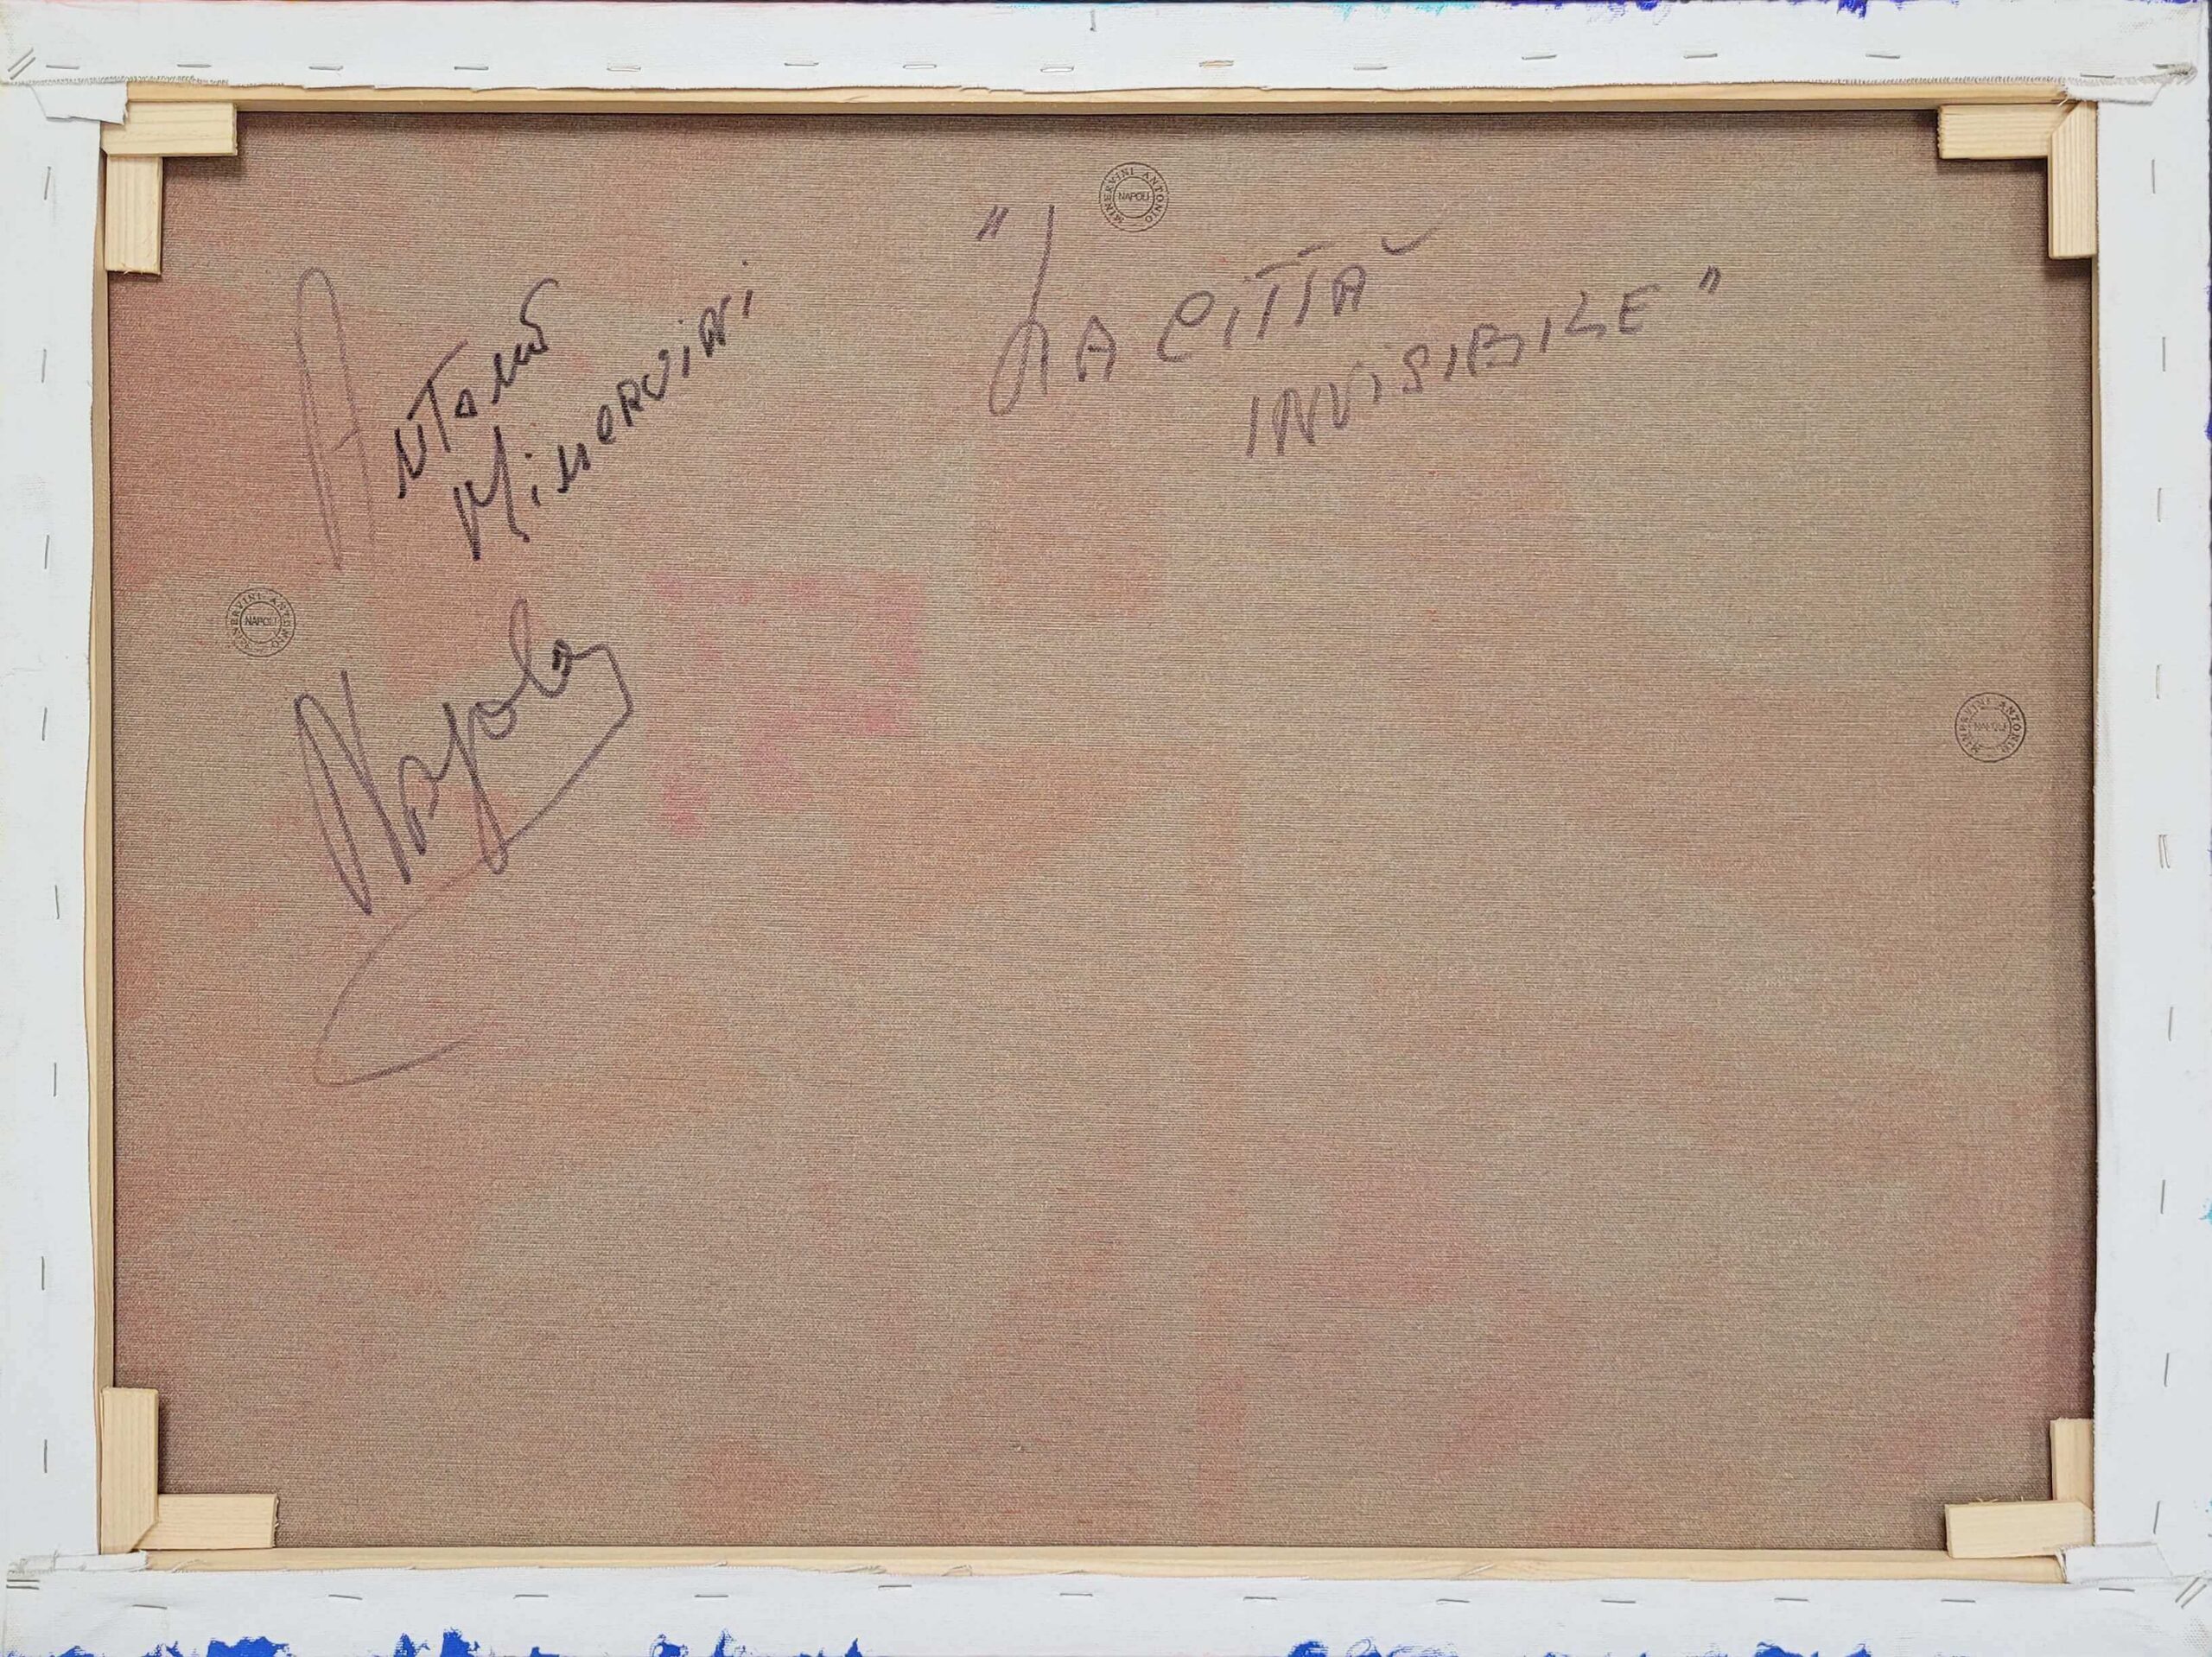 MINERVINI ANTONIO
NAPOLI
"LA CITTA'
INVISIBILE"
Antonio
Minervini
MINERVINI ANTONIO
NAPOLI
Napoli
MINERVINI ANTONIO
NAPOLI